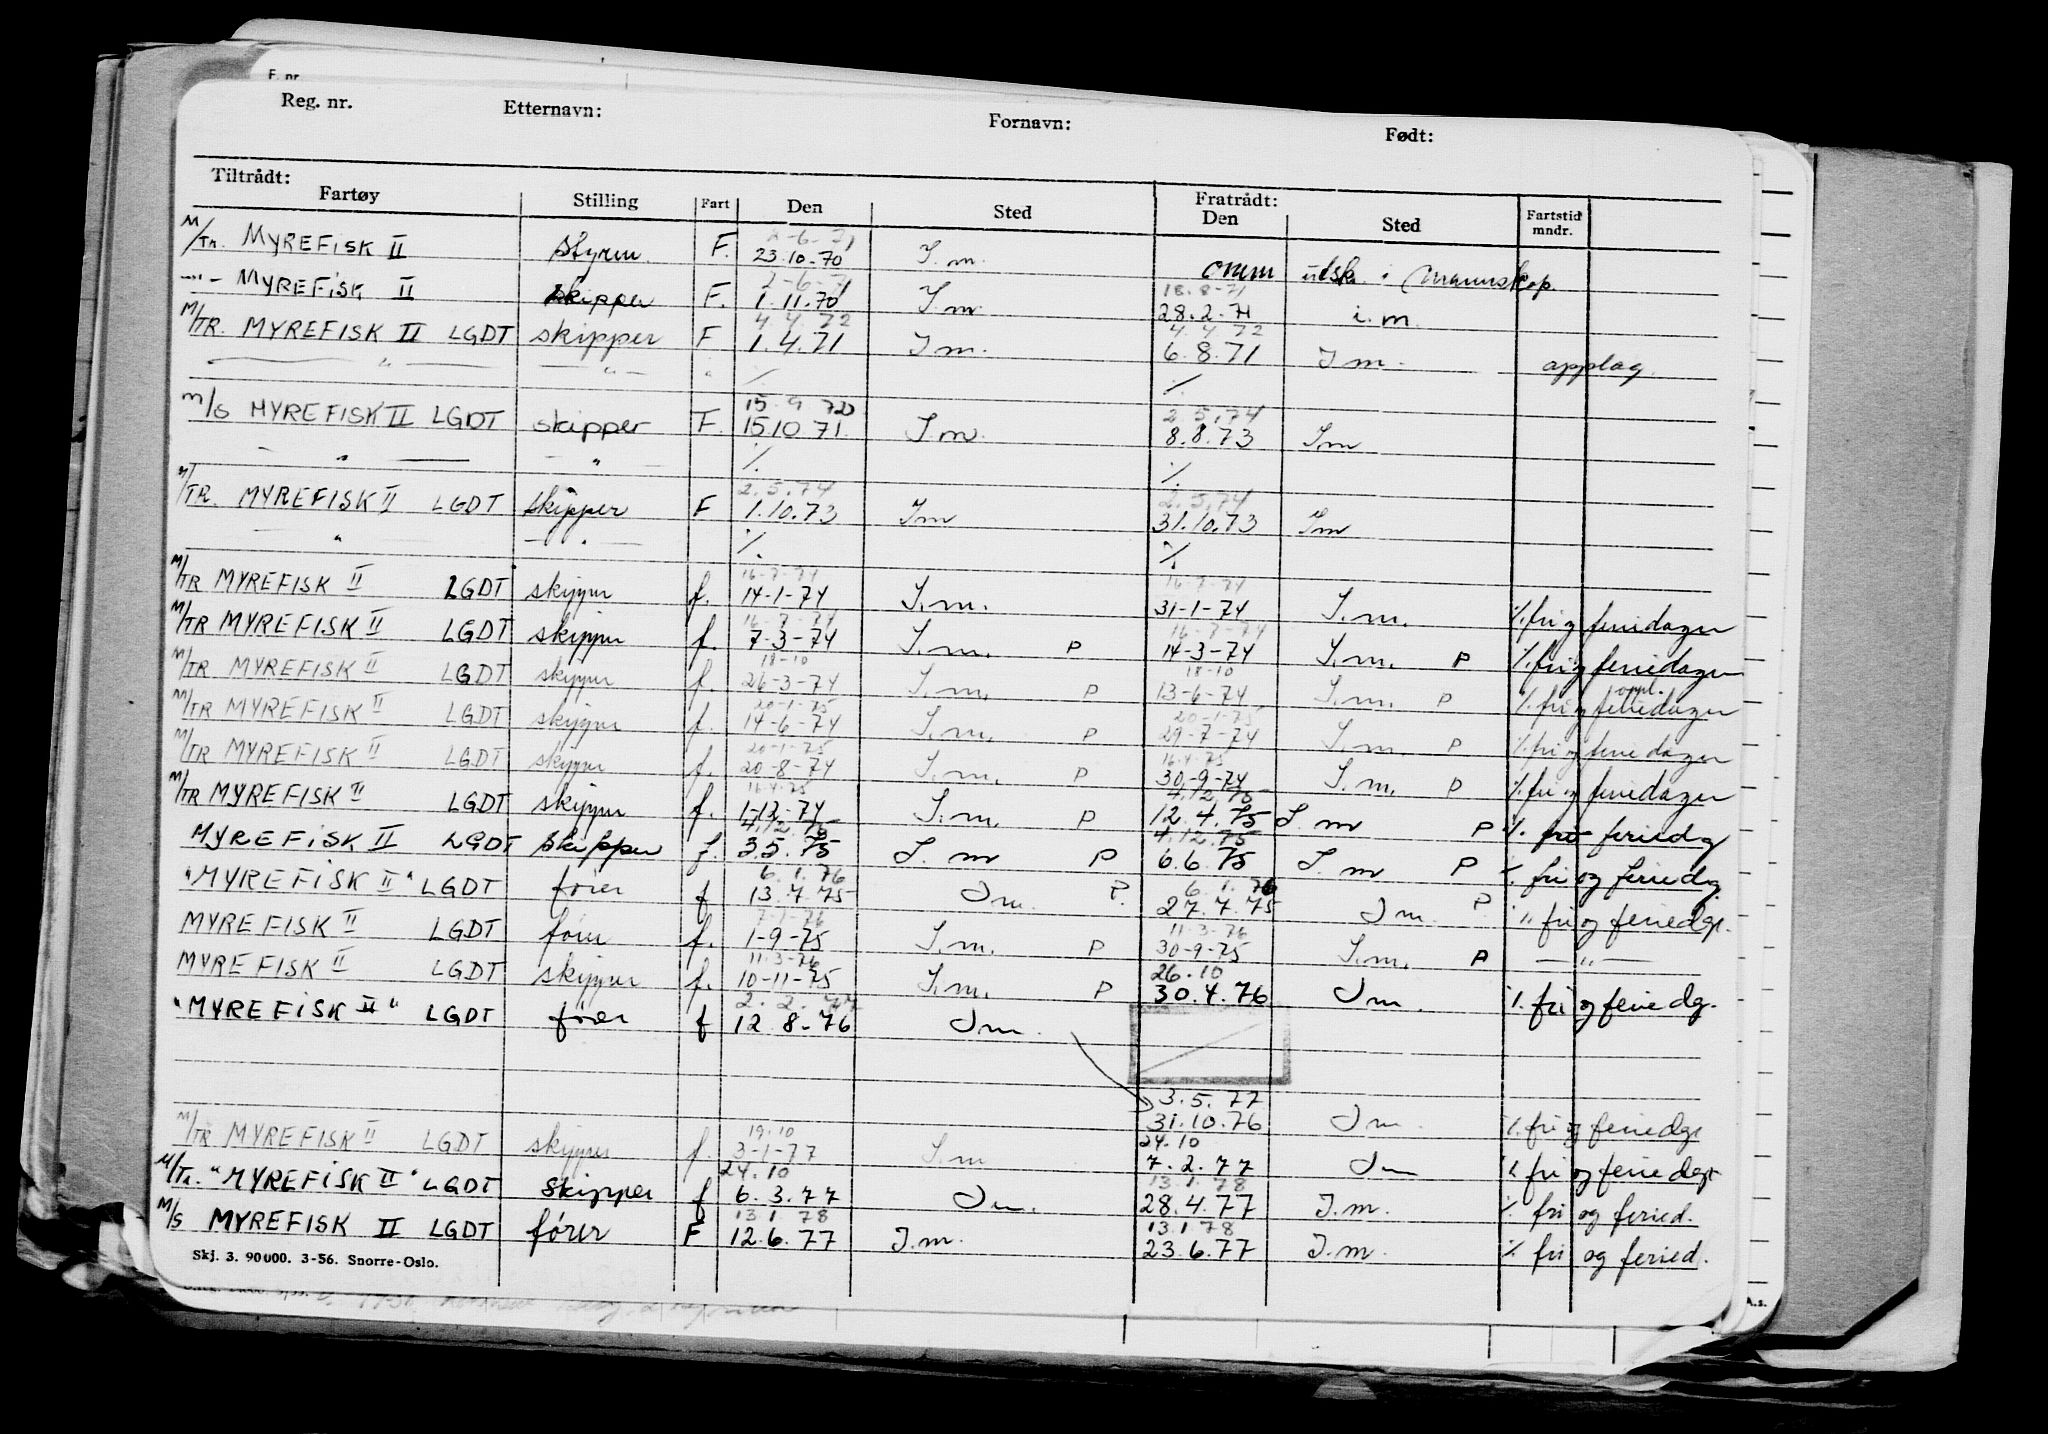 F. nr.
Reg. nr. Etternavn: Fornavn: Født:
Tiltrådt: Fratrådt:
Fartøy Stilling Fart Den Sted Den Sted Fartstid mndr.
2-6-71
M/Tr. MYREFISK II styrm. F. 23.10.70 I.m. omm utsk. i mannskap.
2-6-71 18.8-71
-"- MYREFISK II skipper F. 1.11.70 I.m. 28.2.71 i.m.
4.4.72 4.4.72
M/TR. MYREFISK II LGDT skipper F 1.4.71 I m. 6.8.71 I m. opplag.
" " " % %
15.9 72 2.5.74
M/S MYREFISK II LGDT skipper F. 15.10.71. I.m. 8.8.73 I m
" " % %
2.5.74 2.5.74
M/TR. MYREFISK II LGDT skipper F 1.10.73 I m 31.10.73 I m
" " % %
16-7-74 16-7-74
M/TR MYREFISK II LGDT skipper f. 14-1-74 I.m. 31-1-74 I.m. %. fri og feriedager
16-7-74 16-7-74
M/TR MYREFISK II LGDT skipper f. 7-3-74 I.m. P 14-3-74 I.m. P %. fri og feriedager
18-10 18-10 oppl.
M/TR MYREFISK II LGDT skipper f. 26-3-74 I.m. P 13-6-74 I.m. P %. fri og feriedager
20-1-75 20-1-75
M/TR MYREFISK II LGDT skipper f. 14-6-74 I.m. P 29-7-74 I.m. P %. fri og feriedager
20-1-75 16-4-75
M/TR MYREFISK II LGDT skipper f. 20-8-74 I.m. P 30-9-74 I.m. P %. fri og feriedager
16-4-75 4.12.75
M/TR MYREFISK II LGDT skipper f. 1-12-74 I.m. P 12.4.75 I.m P %. fri feriedg
4.12.75 4.12.75
MYREFISK II LGDT skipper f. 3.5.75 I.m P 6.6.75 I.m P %. fri og feriedg.
6.1.76 6.1.76
"MYREFISK II" LGDT fører f 13.7.75 I m. P. 27.7.75 I m. P % fri og feriedgr.
7-1-76 11-3-76
MYREFISK II LGDT fører f. 1-9-75 I.m. P 30-9-75 I.m. P -"-
11-3-76 26.10
MYREFISK II LGDT skipper f. 10-11-75 I.m. P 30.4.76 I m. %. fri og feriedg.
2.2.77
"MYREFISK II" LGDT fører f 12.8.76 I m.
3.5.77
31.10.76 I m. %. fri og feriedgr
19.10 24.10
M/TR MYREFISK II LGDT skipper f. 3-1-77 I.m 7.2.77 I m % fri og feriedgr
24.10 13.1.78
M/Tr. "MYREFISK II" LGDT skipper f 6.3.77 I m. 28.4.77 I.m. % fri og feried.
13.1 78 13.1 78
M/S MYREFISK II LGDT fører F 12.6.77 I.m. 23.6.77 I.m. % fri og feried.
Skj. 3. 90000. 3-56. Snorre-Oslo.
A.s.